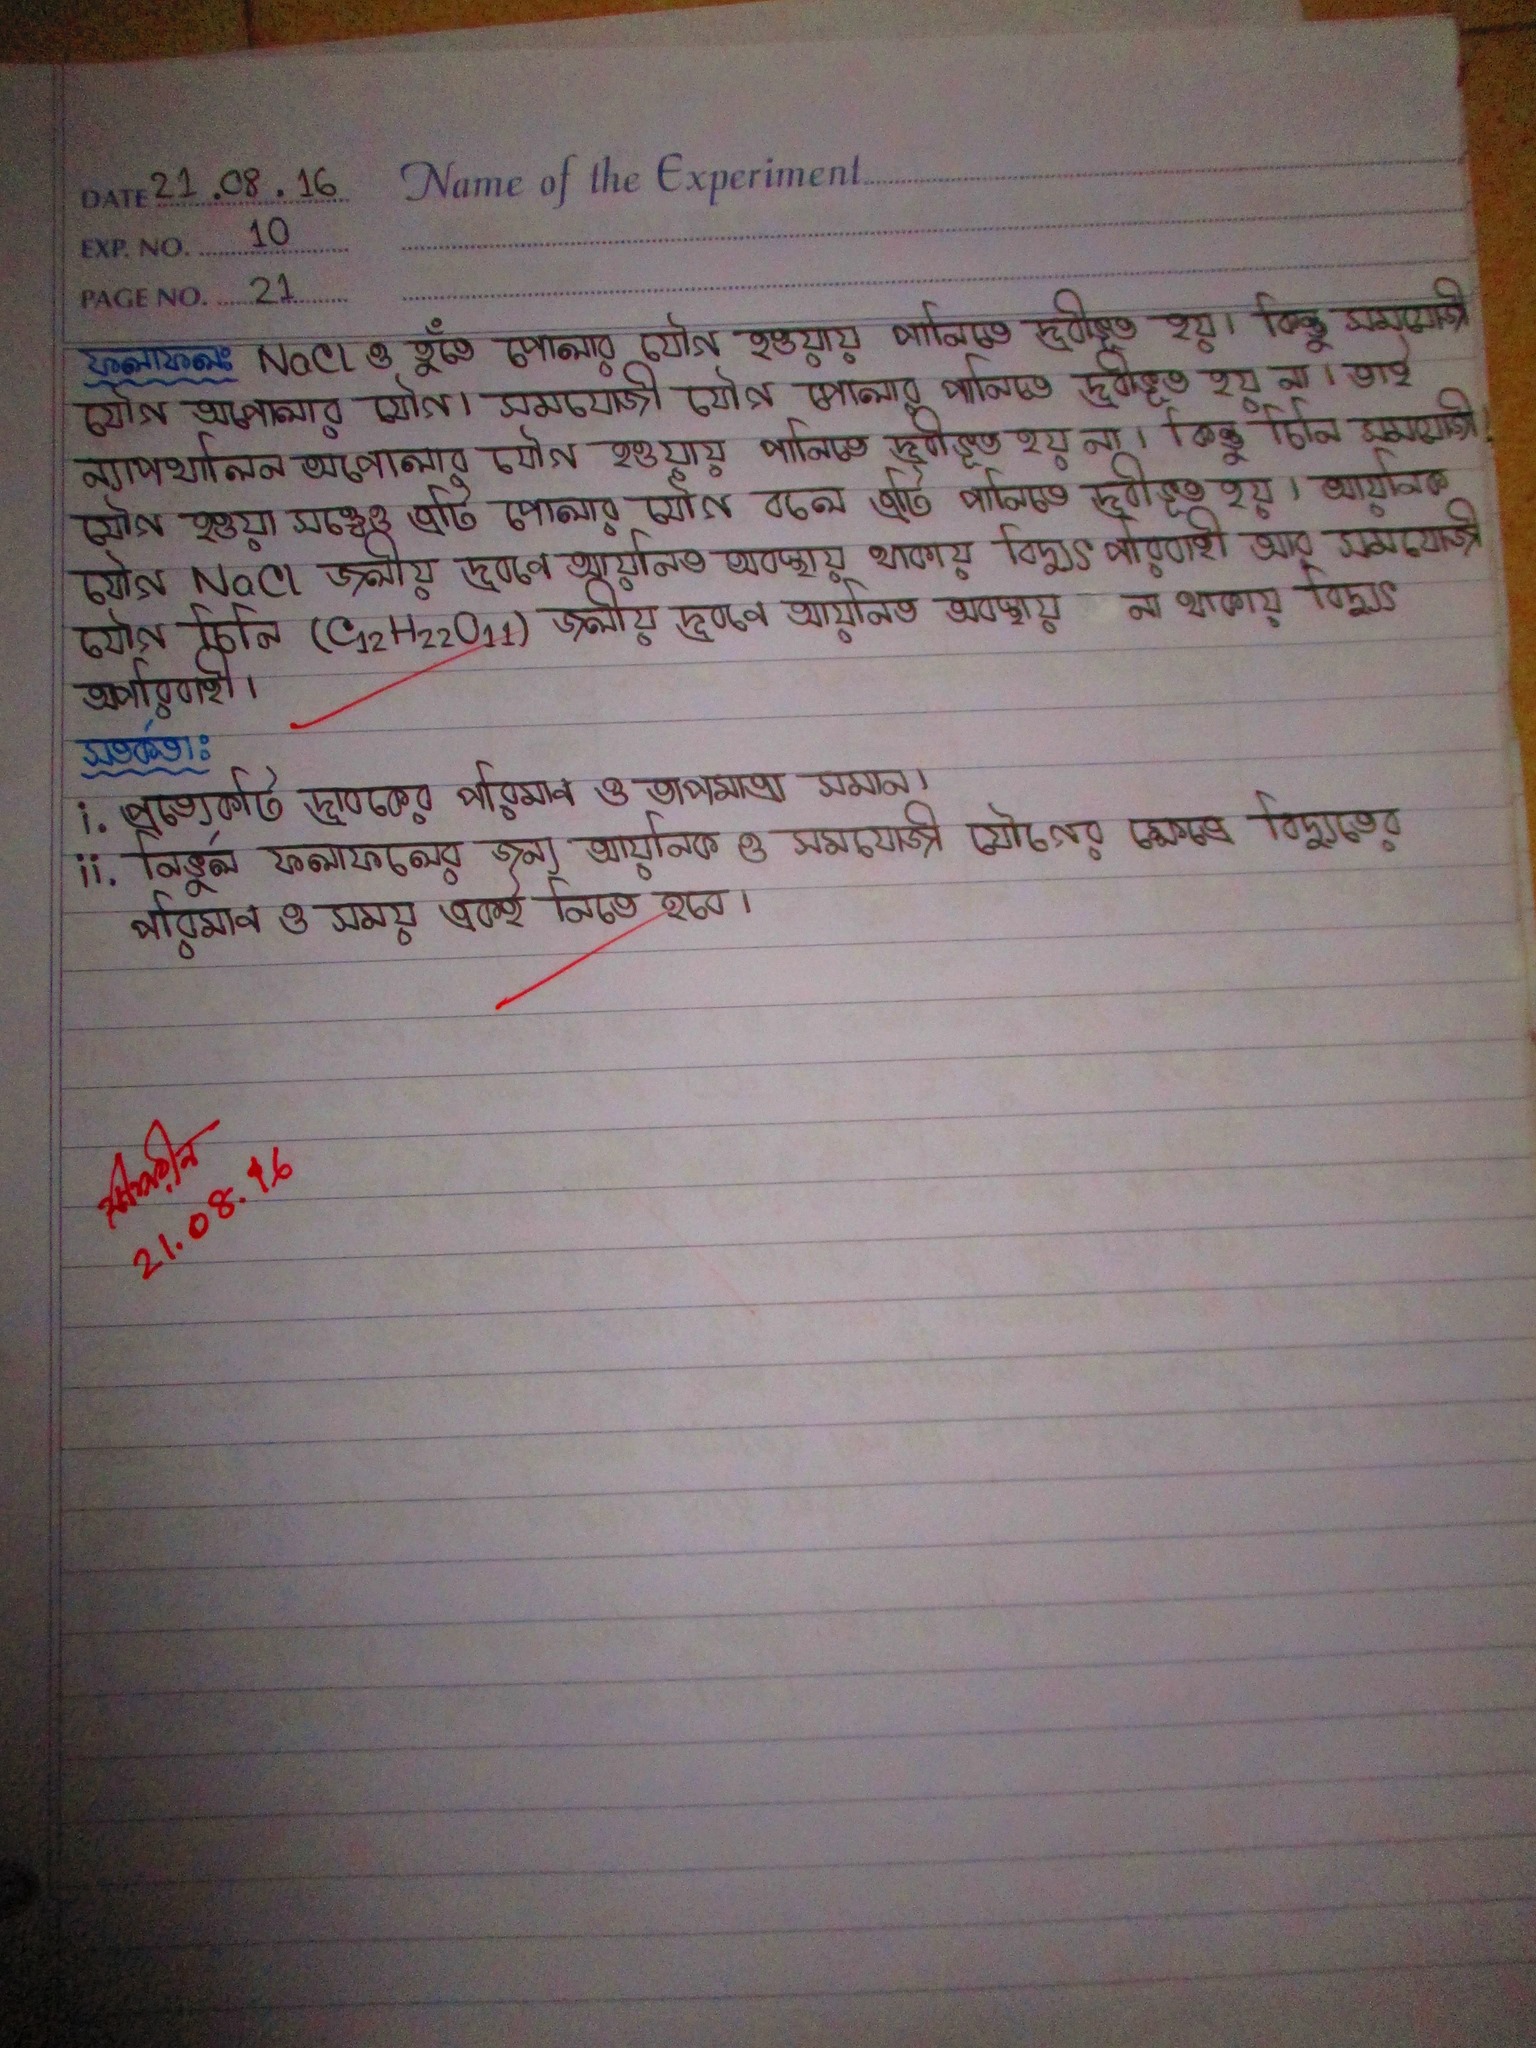 DATE 21.08.16 Name of the Experiment
EXP. NO. 10
PAGE NO. 21
ফলাফলঃ NaCl ও তুঁতে পোলার যৌগ হওয়ায় পানিতে দ্রবীভূত হয়। কিন্তু সমযোজী
যৌগ অপোলার যৌগ। সমযোজী যৌগ পোলার পানিতে দ্রবীভূত হয় না। তাই
ন্যাপথালিন অপোলার যৌগ হওয়ায় পানিতে দ্রবীভূত হয় না। কিন্তু চিনি সমযোজী
যৌগ হওয়া সত্ত্বেও এটি পোলার যৌগ বলে এটি পানিতে দ্রবীভূত হয়। আয়নিক
যৌগ NaCl জলীয় দ্রবণে আয়নিত অবস্থায় থাকায় বিদ্যুৎ পরিবাহী আর সমযোজী
যৌগ চিনি (C₁₂H₂₂O₁₁) জলীয় দ্রবণে আয়নিত অবস্থায় না থাকায় বিদ্যুৎ
অপরিবাহী।
সতর্কতাঃ
i. প্রত্যেকটি দ্রাবকের পরিমান ও তাপমাত্রা সমান।
ii. নির্ভুল ফলাফলের জন্য আয়নিক ও সমযোজী যৌগের ক্ষেত্রে বিদ্যুতের
পরিমান ও সময় একই নিতে হবে।
21.08.16